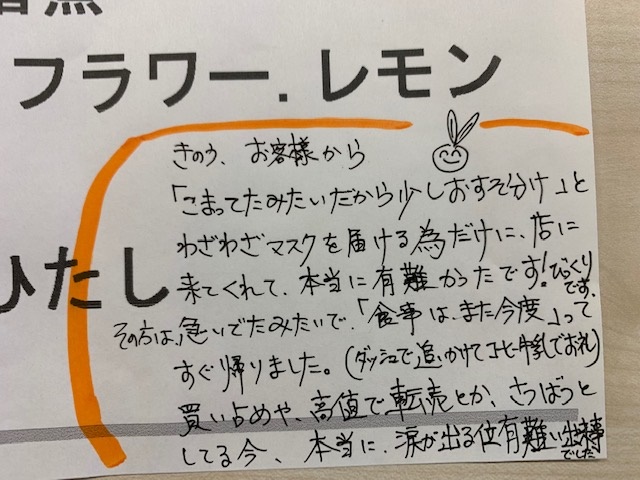 フラワー.レモン
きのう、お客様から
「こまってたみたいだから少しおすそ分け」と
わざわざマスクを届ける為だけに、店に
来てくれて、本当に有難かったです!びっくりです、
ひたし
その方は、急いでたみたいで、「食事は、また今度」って
すぐ帰りました。(ダッシュで追いかけてコーヒー牛乳でお礼)
買い占めや、高値で転売とか、さつばつと
してる今、本当に、涙が出る位有難い出来事でした